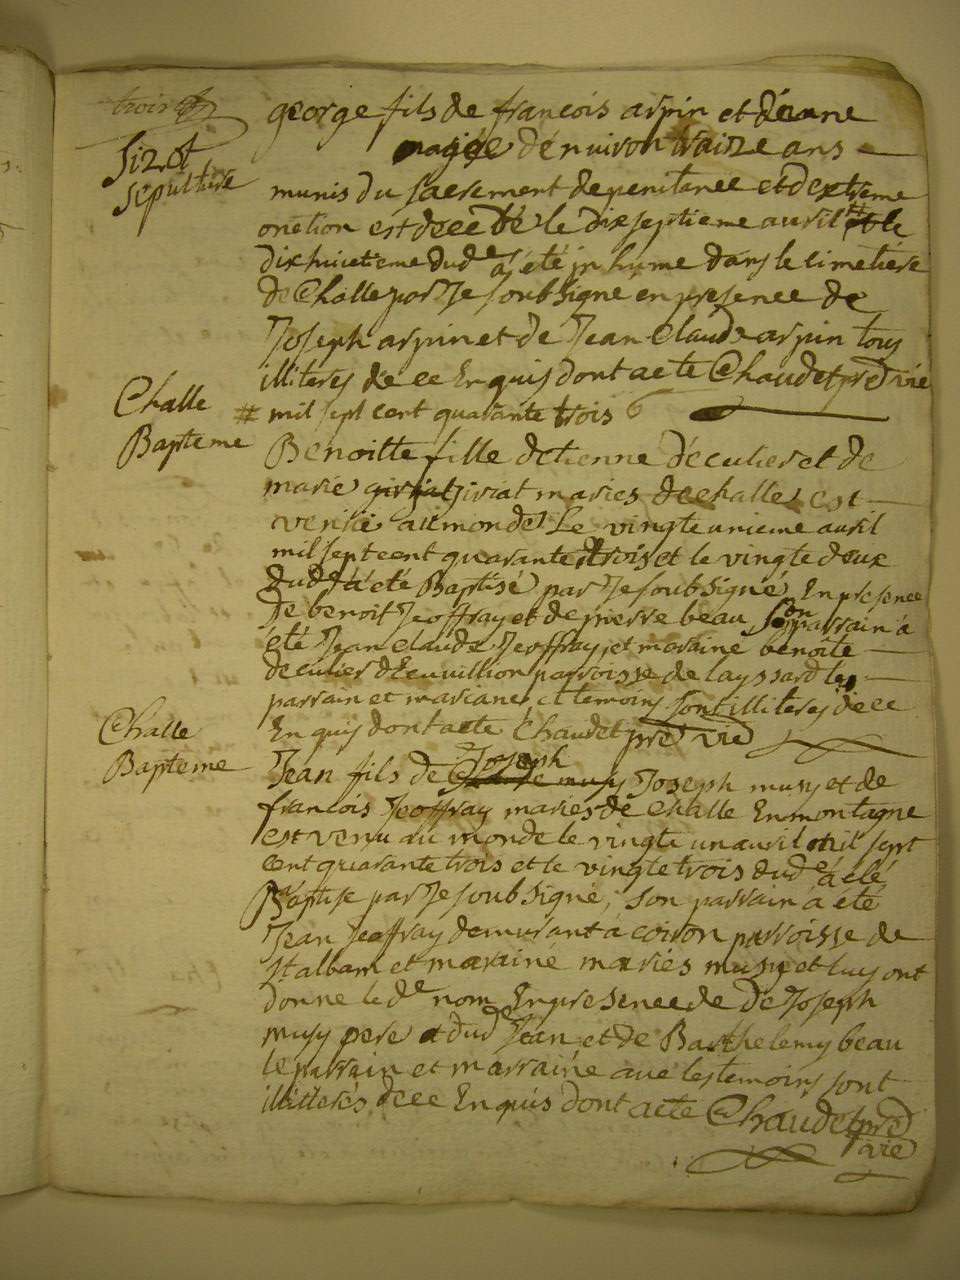 trois
Sizot
Sepulture
george fils de francois arpin et deanne
magée dénuiron traize ans
munis du sacrement de penitance et dextreme
onction est decedé le dixseptieme auril # et le
dixhuictieme dud.e a été jnhumé dans le cimetiére
de Challe par Je soubsigné en presence de
Joseph arpin et de Jean Claude arpin tous
illiterés de ce Enquis dont acte Chaudet pre vic
# mil sept cent quarante trois
Challe
Bapteme
Benoitte fille detienne déculier et de
marie jiriat mariés de challe est
venüe au monde Le vingte unieme auril
mil sept cent quarante trois et le vingte deux
dud.e a été Baptisé par Je soubsigné En presence
de benoit Jeoffray et de pierre beau Son parrain a
eté Jean claude Jeoffray et maraine benoite
deculier dEeuuillion parroisse de Layssard les
parrain et maraine et temoins sont illiterés de ce
Enquis dont acte Chaudet pre vic
Challe
Bapteme
Joseph
Jean fils de Claude musy Joseph musy et de
francois Jeoffray mariés de Challe En montagne
est venu au monde le vingte un auril mil sept
cent quarante trois et le vingte trois dud.e a eté
Baptise par Je soubsigné, Son parrain a été
Jean Jeoffray demurant a coiron parroisse de
St alban et maraine mariés musy et luy ont
donne le d.e nom En presence de De Joseph
musy pere et dud.e Jean et de Barthelemy beau
le parrain et marraine aue les temoins sont
illitterés de ce Enquis dont acte Chaudet pre
vic